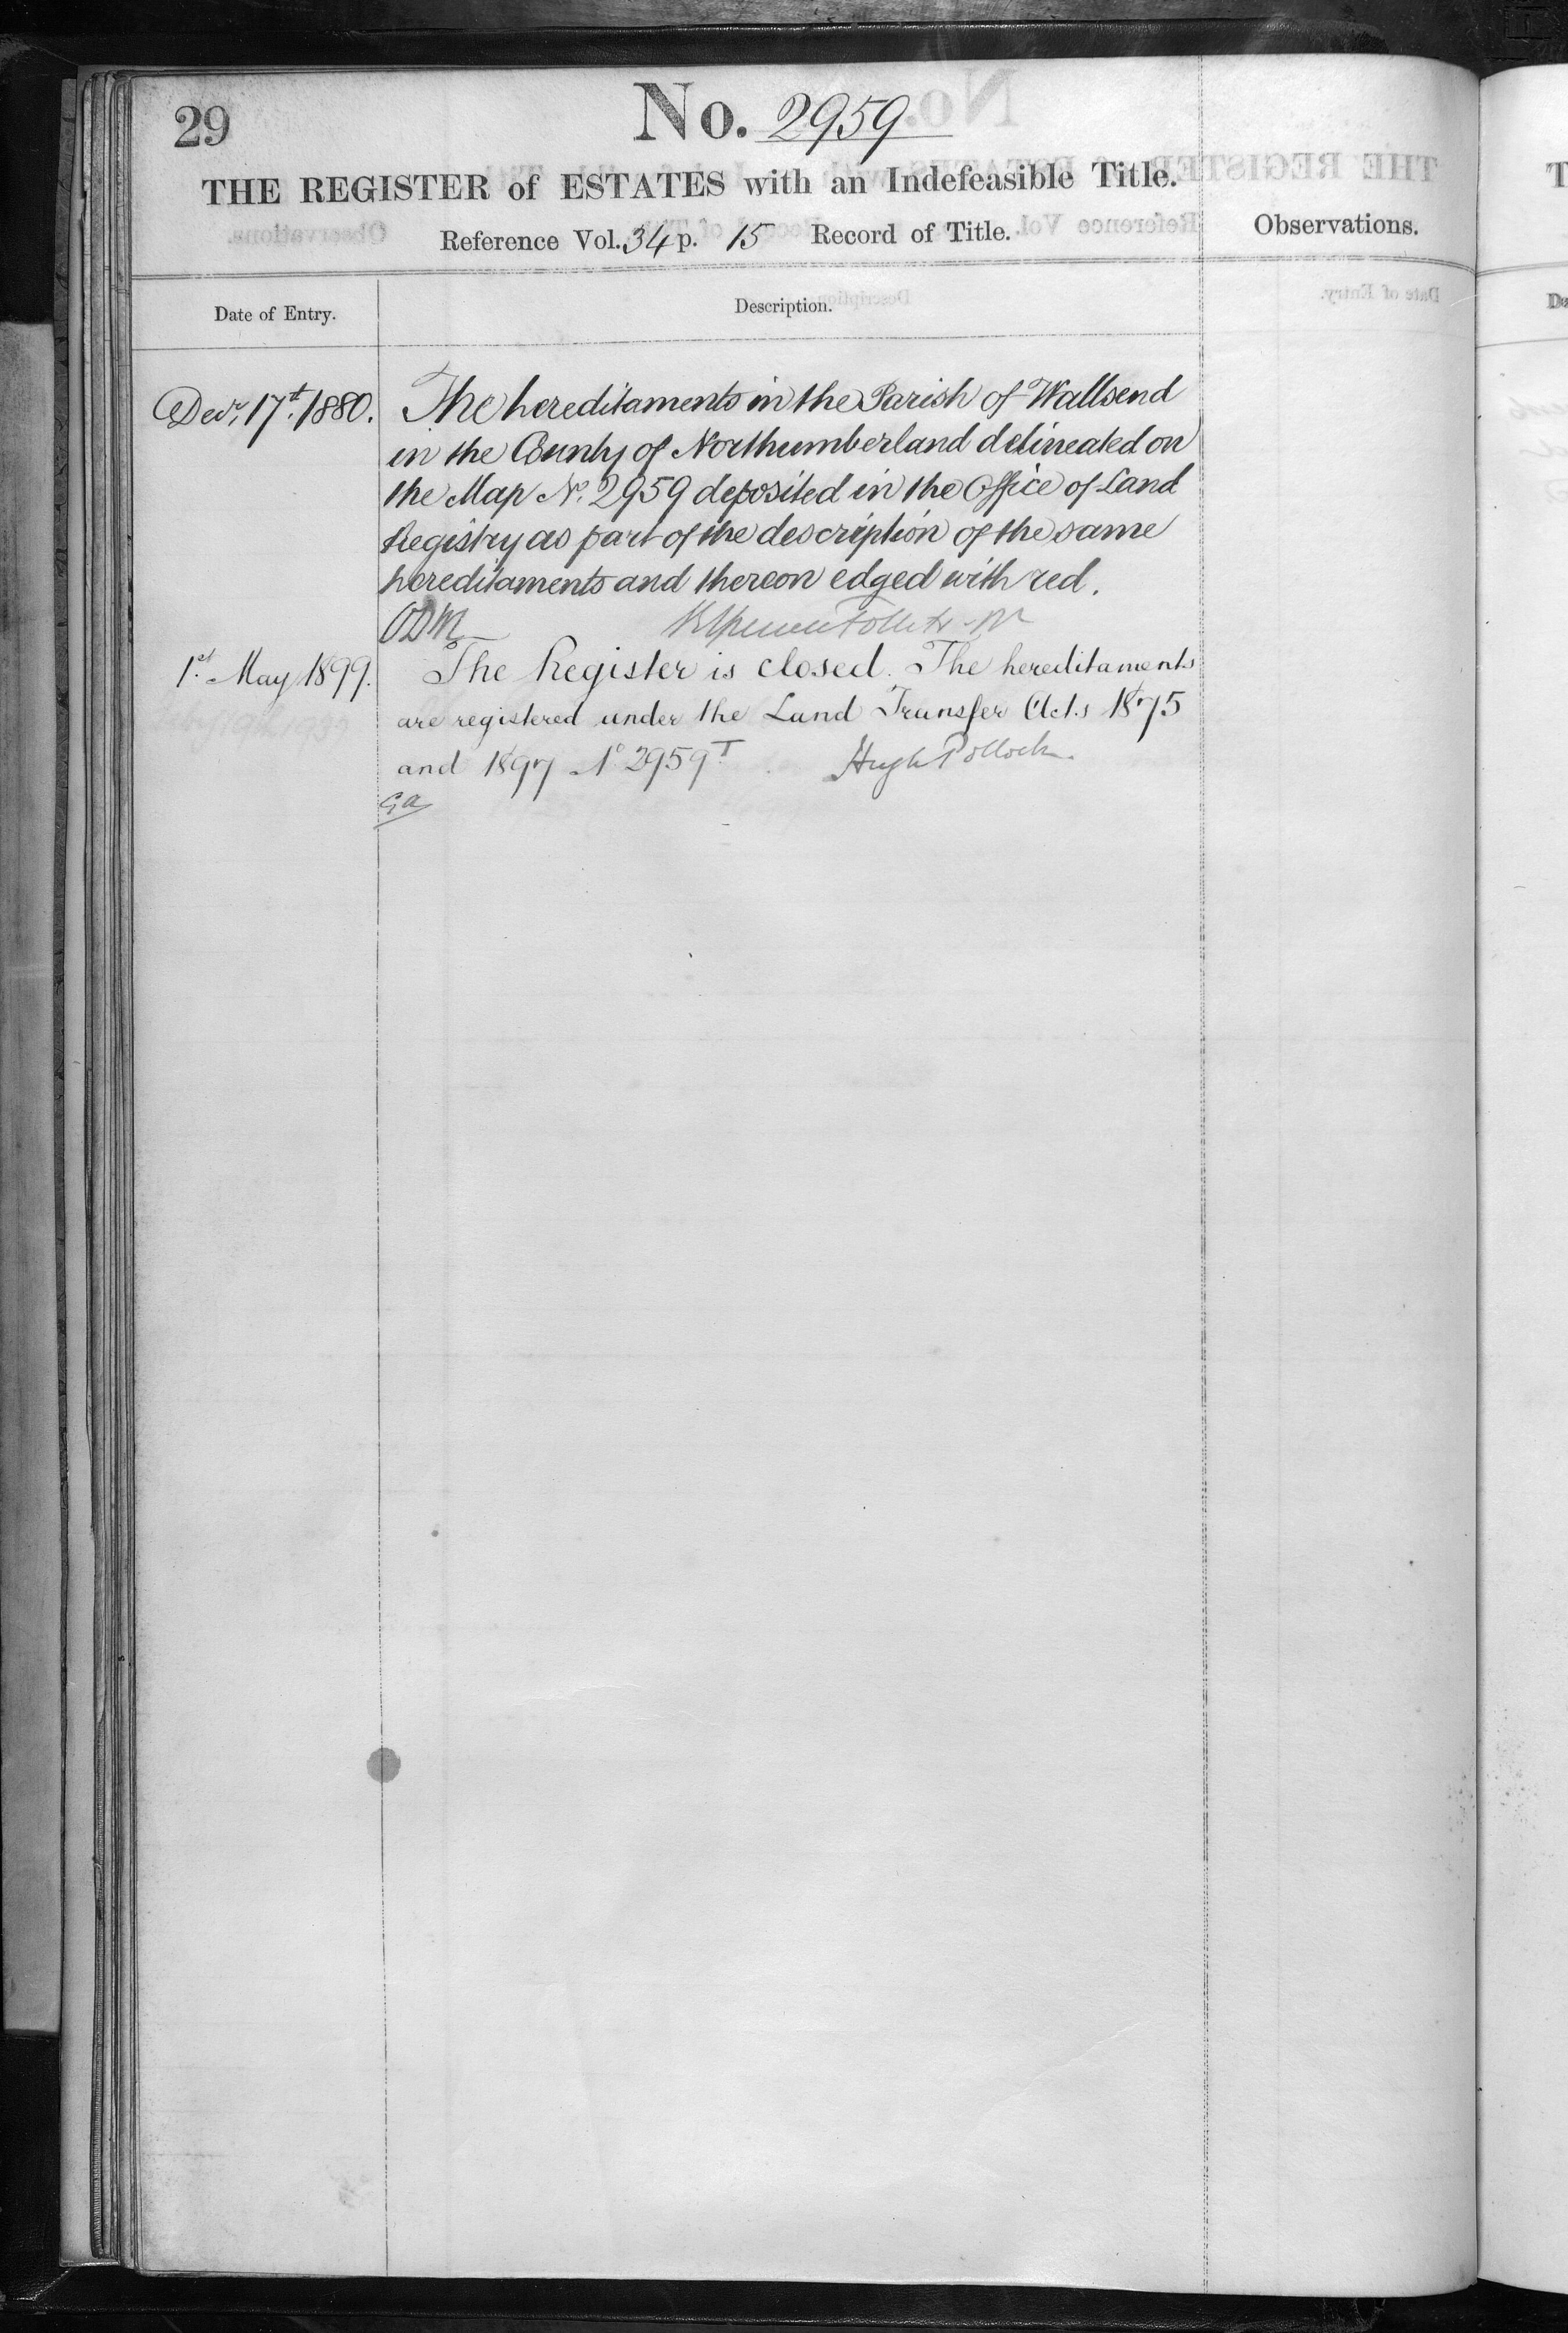 29
No. 2959
THE REGISTER of ESTATES with an Indefeasible Title.
Reference Vol. 34 p. 15 Record of Title.
Observations.
Date of Entry.
Description.
Decr. 17th. 1880.
The hereditaments in the Parish of Wallsend
in the County of Northumberland delineated on
the Map No. 2959 deposited in the Office of Land
Registry as part of the description of the same
hereditaments and thereon edged with red.
ODM
1st. May 1899.
The Register is closed. The hereditaments
are registered under the Land Transfer Acts 1875
and 1897 No 2959 T. Hugh Pollock.
GA